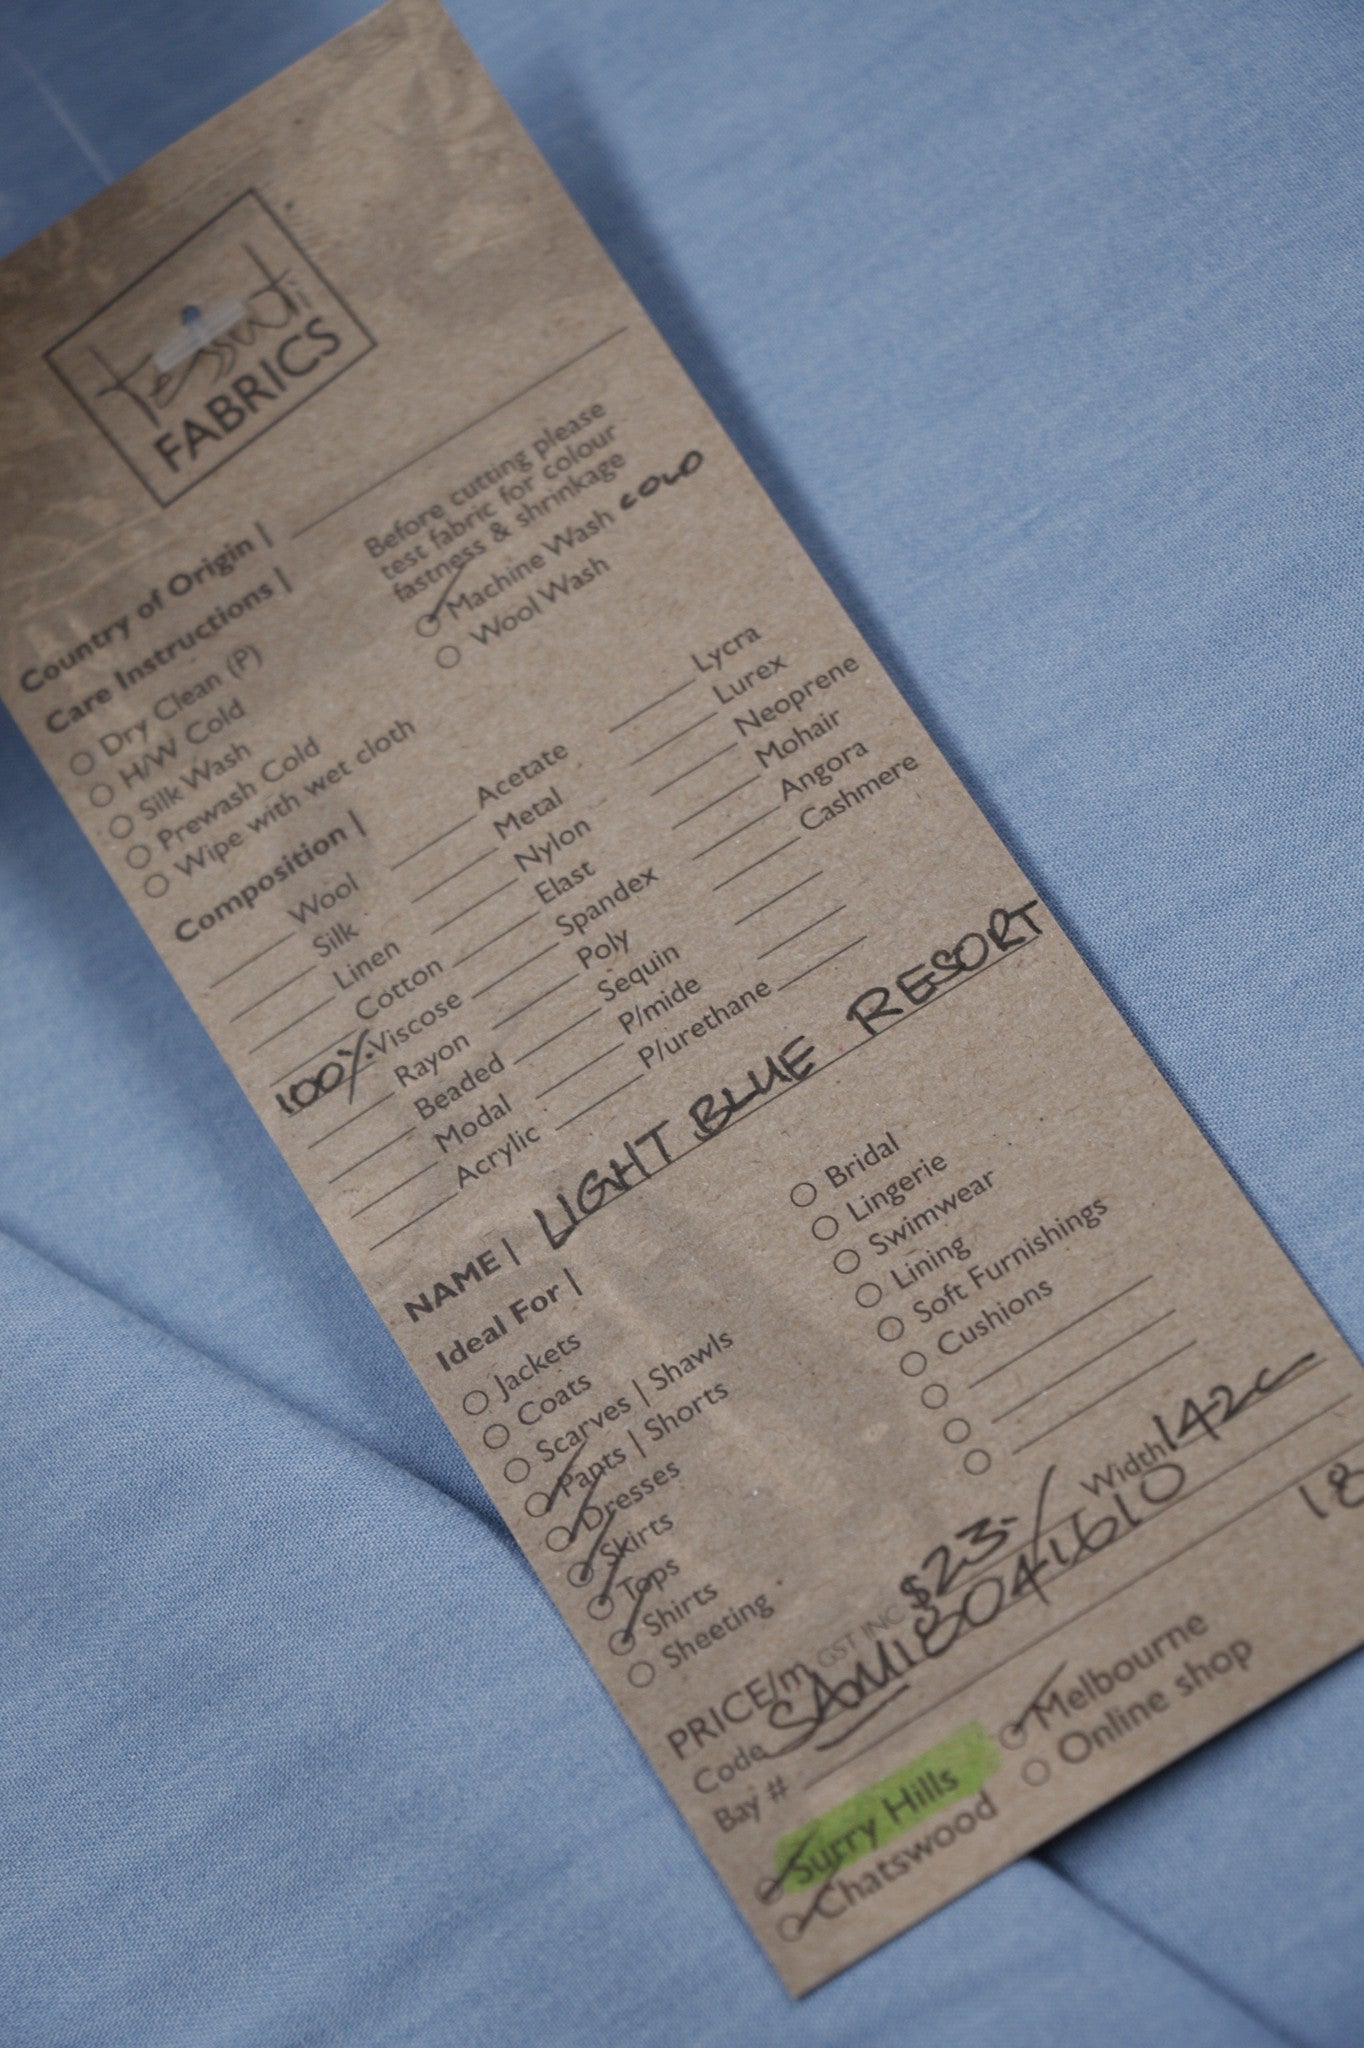 tessuti
FABRICS
Country of Origin |
Care Instructions |
Before cutting please
test fabric for colour
fastness & shrinkage
Dry Clean (P)
H/W Cold
Silk Wash
Prewash Cold
Wipe with wet cloth
Machine Wash COLD
Wool Wash
Composition |
Wool
Silk
Linen
Cotton
100% Viscose
Rayon
Beaded
Modal
Acrylic
Acetate
Metal
Nylon
Elast
Spandex
Poly
Sequin
P/mide
P/urethane
Lycra
Lurex
Neoprene
Mohair
Angora
Cashmere
NAME | LIGHT BLUE RESORT
Ideal For |
Jackets
Coats
Scarves | Shawls
Pants | Shorts
Dresses
Skirts
Tops
Shirts
Sheeting
Bridal
Lingerie
Swimwear
Lining
Soft Furnishings
Cushions
PRICE/m GST INC $23.- Width 142c
Code
Bay #
18
Surry Hills
Chatswood
Melbourne
Online shop